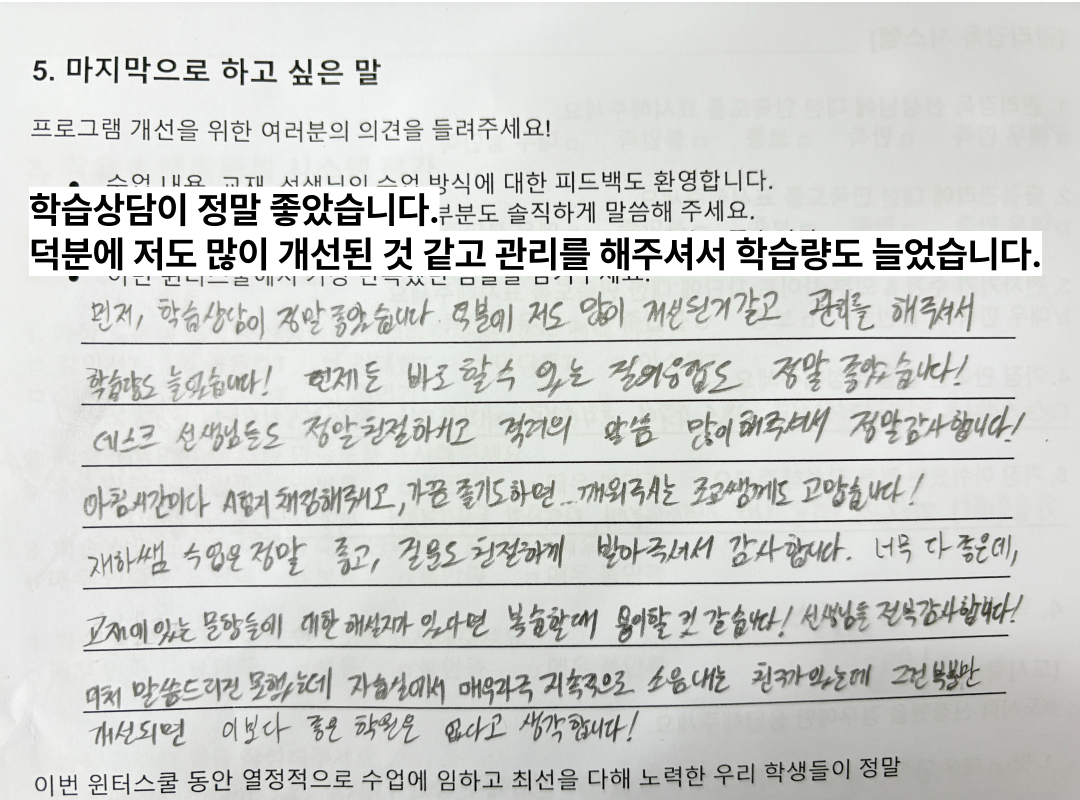 5. 마지막으로 하고 싶은 말
프로그램 개선을 위한 여러분의 의견을 들려주세요!
수업 내용, 교재, 선생님의 수업 방식에 대한 피드백도 환영합니다.
학습상담이 정말 좋았습니다.
부분도 솔직하게 말씀해 주세요.
덕분에 저도 많이 개선된 것 같고 관리를 해주셔서 학습량도 늘었습니다.
먼저, 학습상담이 정말 좋았습니다 덕분에 저도 많이 개선된거 같고 관리를 해주셔서
학습량도 늘었습니다! 언제든 바로 할수 있는 질의응답도 정말 좋았습니다!
데스크 선생님들도 정말친절하시고 격려의 말씀 많이해주셔서 정말감사합니다!
아침시간마다 체크해주시고, 가끔 졸기도하면 깨워주시는 조교쌤께도 고맙습니다!
재하쌤 수업은 정말 좋고, 질문도 친절하게 받아주셔서 감사합니다. 너무 다 좋은데,
교재에 있는 문항들에 대한 해설지가 있다면 복습할때 용이할 것 같습니다! 선생님들 전부감사합니다!
미처 말씀드리진 못했는데 자습실에서 매우 지속적으로 소음내는 친구가있는데 그런 부분만
개선되면 이보다 좋은 학원은 없다고 생각합니다!
이번 윈터스쿨 동안 열정적으로 수업에 임하고 최선을 다해 노력한 우리 학생들이 정말